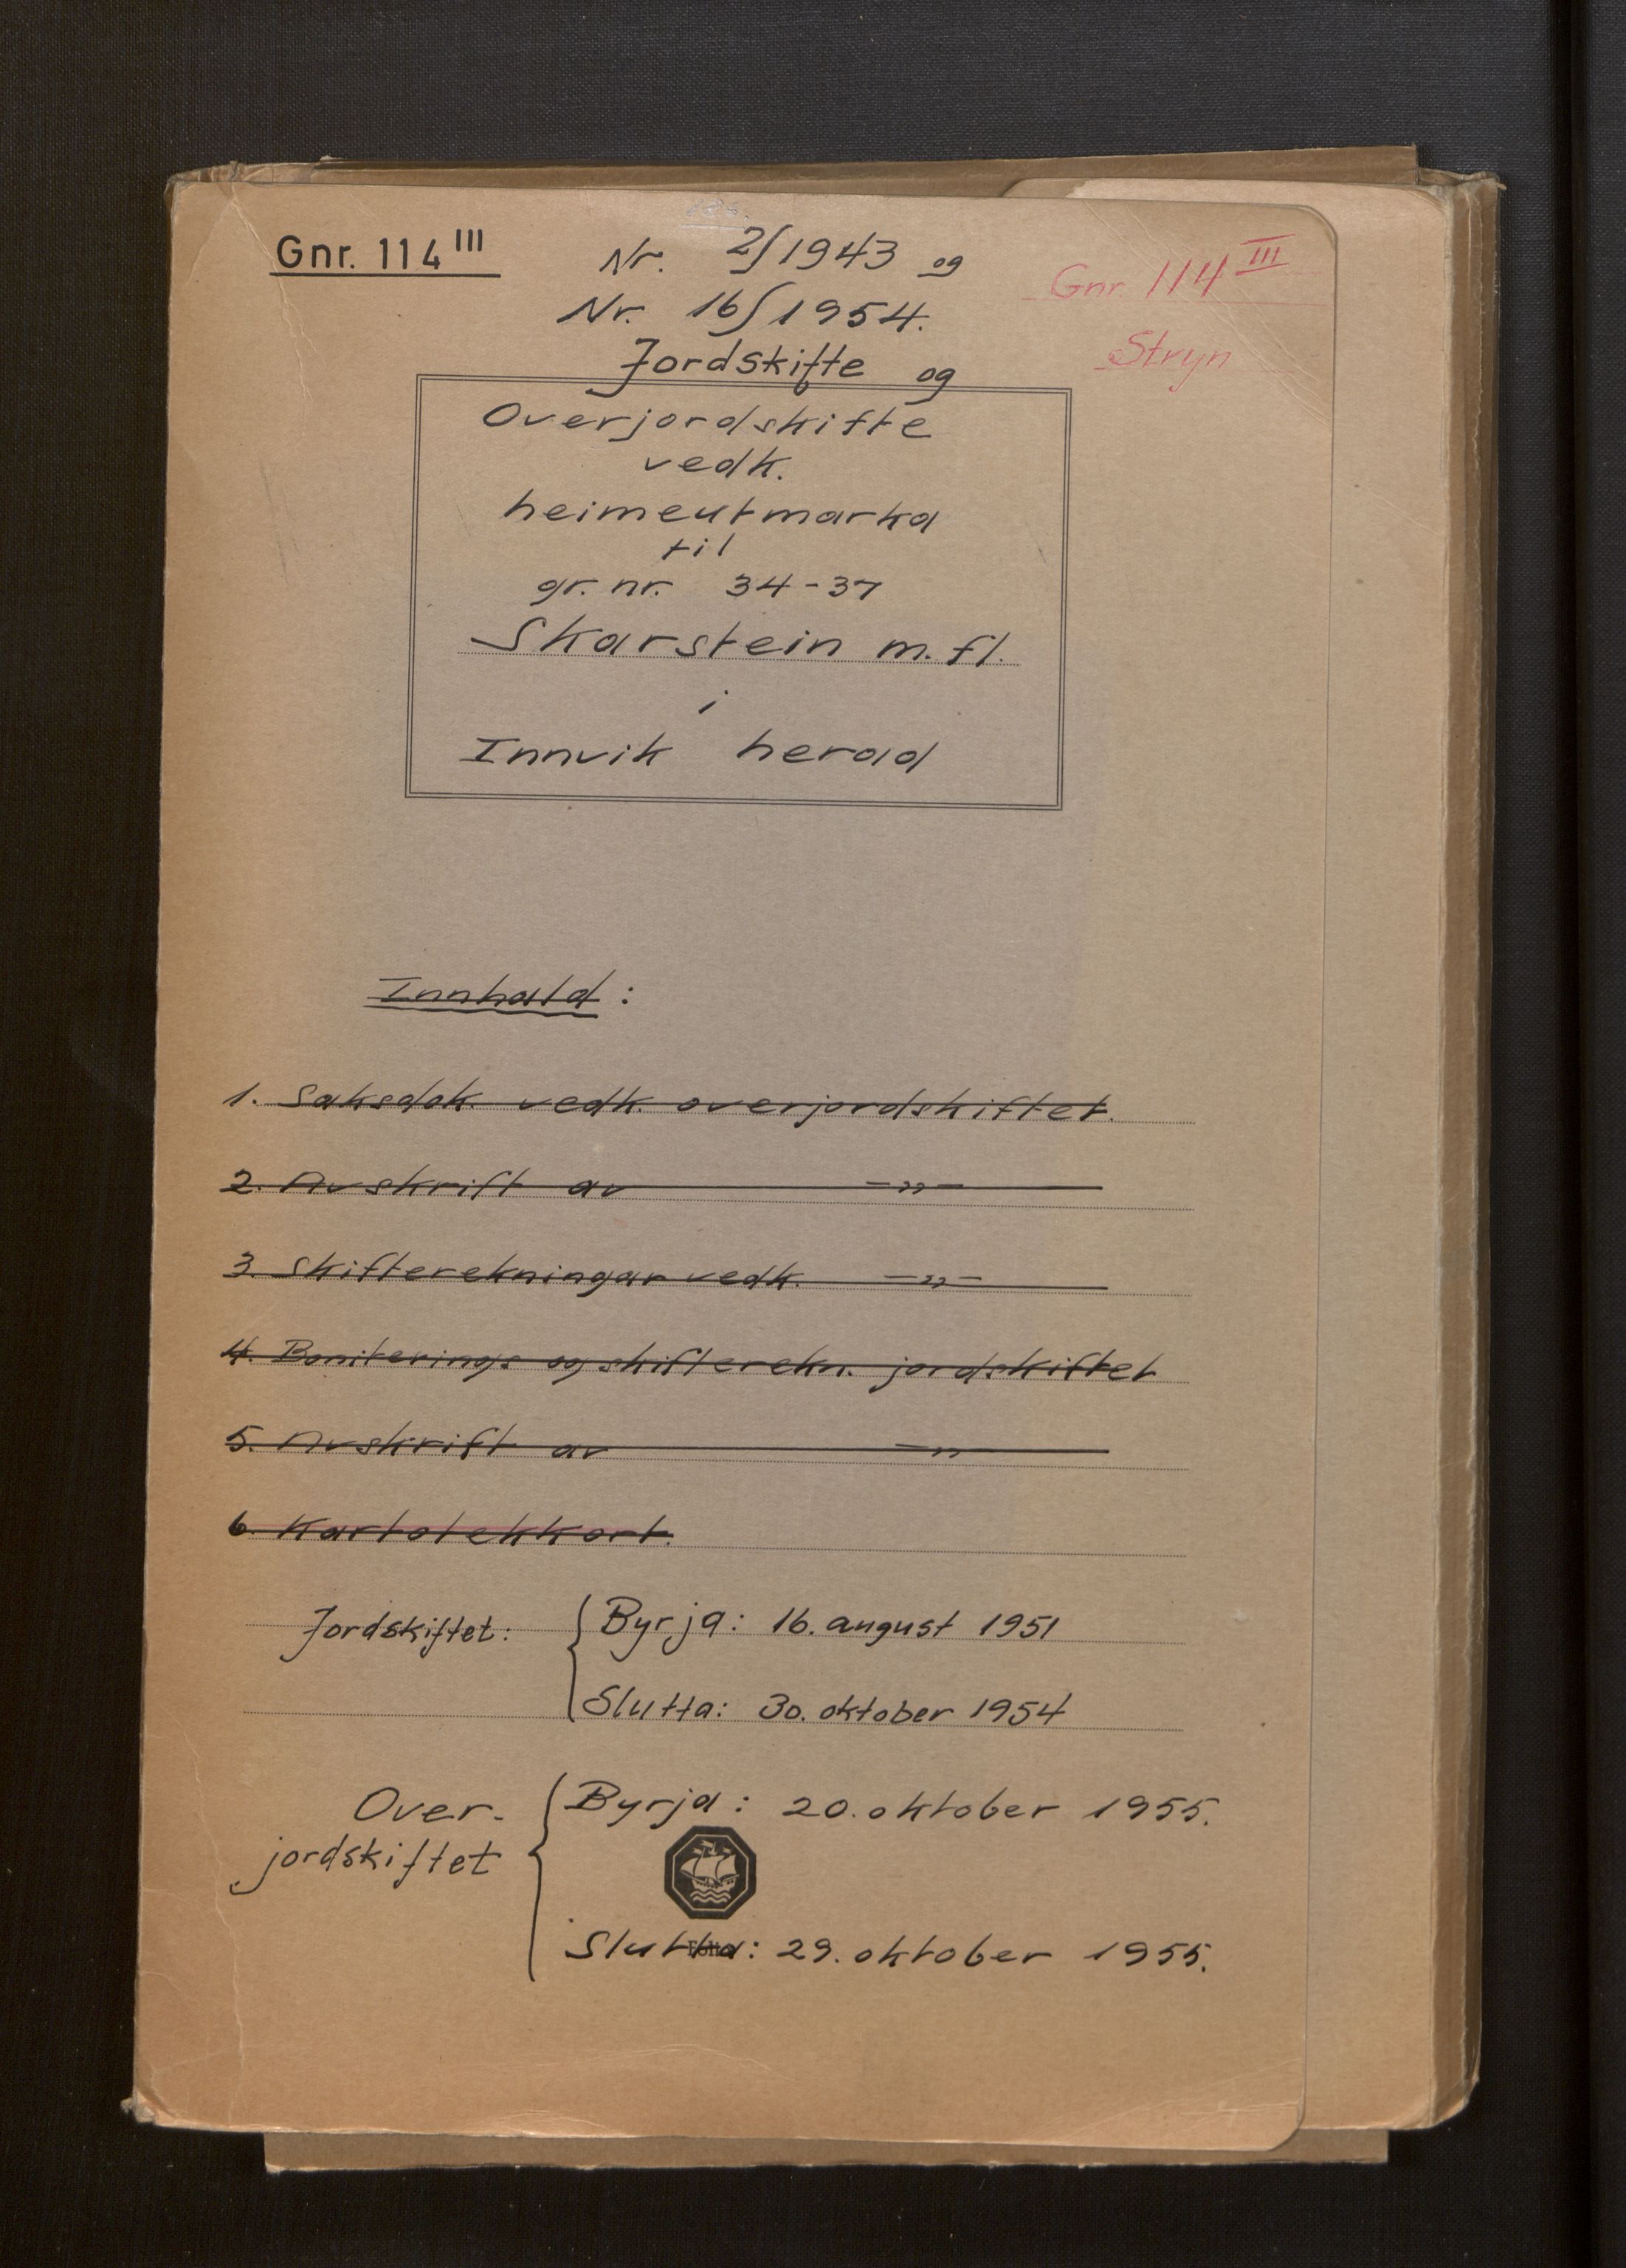 Gnr. 114 III
Nr. 2/1943 og
Nr. 16/1954.
Gnr. 114 III
Stryn
Jordskifte og
Overjordskifte
vedk.
heimeutmarka
til
gr. nr. 34-37
Skarstein m. fl.
i
Innvik herad
Innhald:
1. Saksdok. vedk. overjordskiftet.
2. Avskrift av —„—
3. Skifterekningar vedk. —„—
4. Boniterings og skifterekn. jordskiftet
5. Avskrift av —„—
6. Kartotekkort.
Jordskiftet: { Byrja: 16. august 1951
Slutta: 30. oktober 1954
Over- { Byrja: 20. oktober 1955.
jordskiftet
Slutta: 29. oktober 1955.